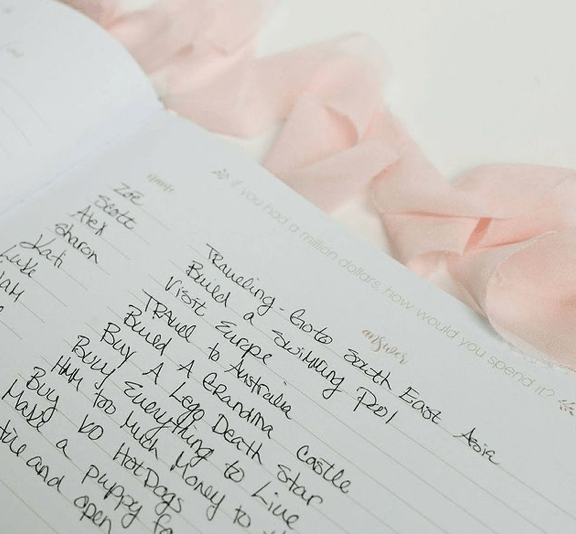 if you had a million dollars, how would you spend it?
name
answer
Zoe Traveling - Go to South East Asia
Scott Build a Swimming Pool
Alex Visit Europe
Sharon Travel to Australia
Kati Build A Grandma Castle
Luke Buy A Lego Death Star
Buy Everything to Live
Hmm too Much Money to
Buy 100 Hot Dogs
Make a puppy
and open